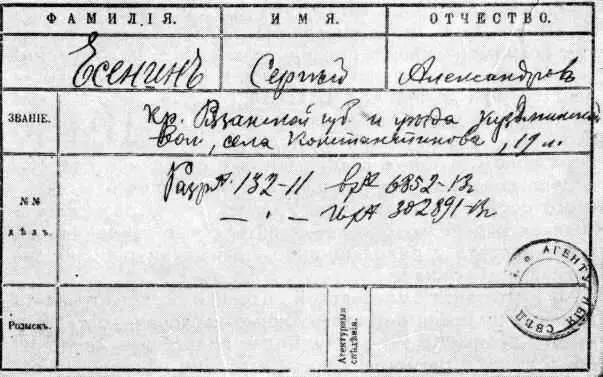 ФАМИЛІЯ. ИМЯ. ОТЧЕСТВО.
Есенинъ Сергѣй Александровъ
ЗВАНІЕ.
Кр. Рязанской губ и уѣзда Кузьминской
Вол, села Константинова, 19 л.
№№
дѣлъ.
Разр. 132-11 6852-13
— " — 302891-13
Розыскъ.
Агентурныя
свѣдѣнія.
АГЕНТУРНЫЯ СВѢД